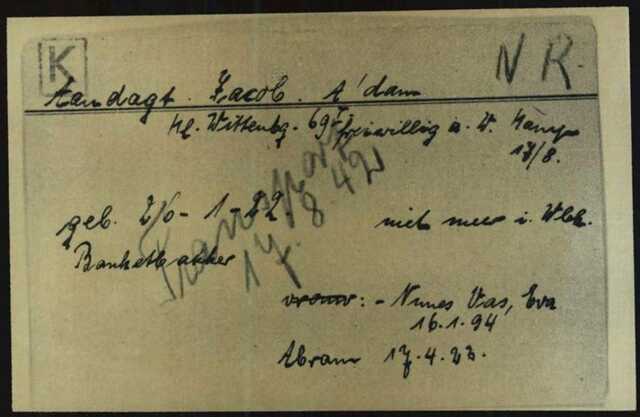 K
N R.
Aandagt. Jacob. A'dam
Kl. Wittenbg. 69 I freiwillig a. W. Kamp
17/8.
geb. 20-1-22. nicht meer i. Wbk.
Banketbakker
Transport
17.8.42
vrouw: - Nunes Vas, Eva
16.1.94
Abram 17.4.23.